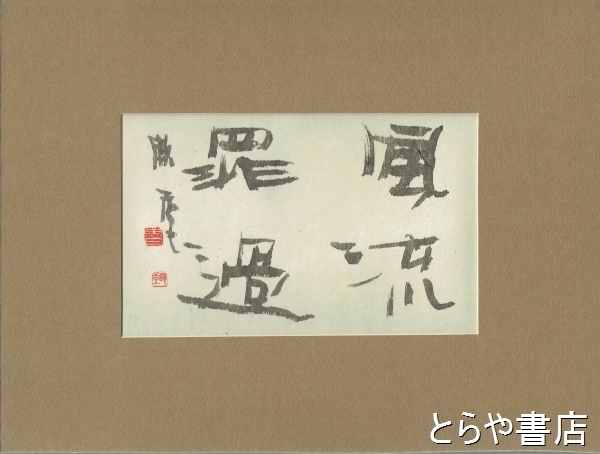 風流
罪過
とらや書店